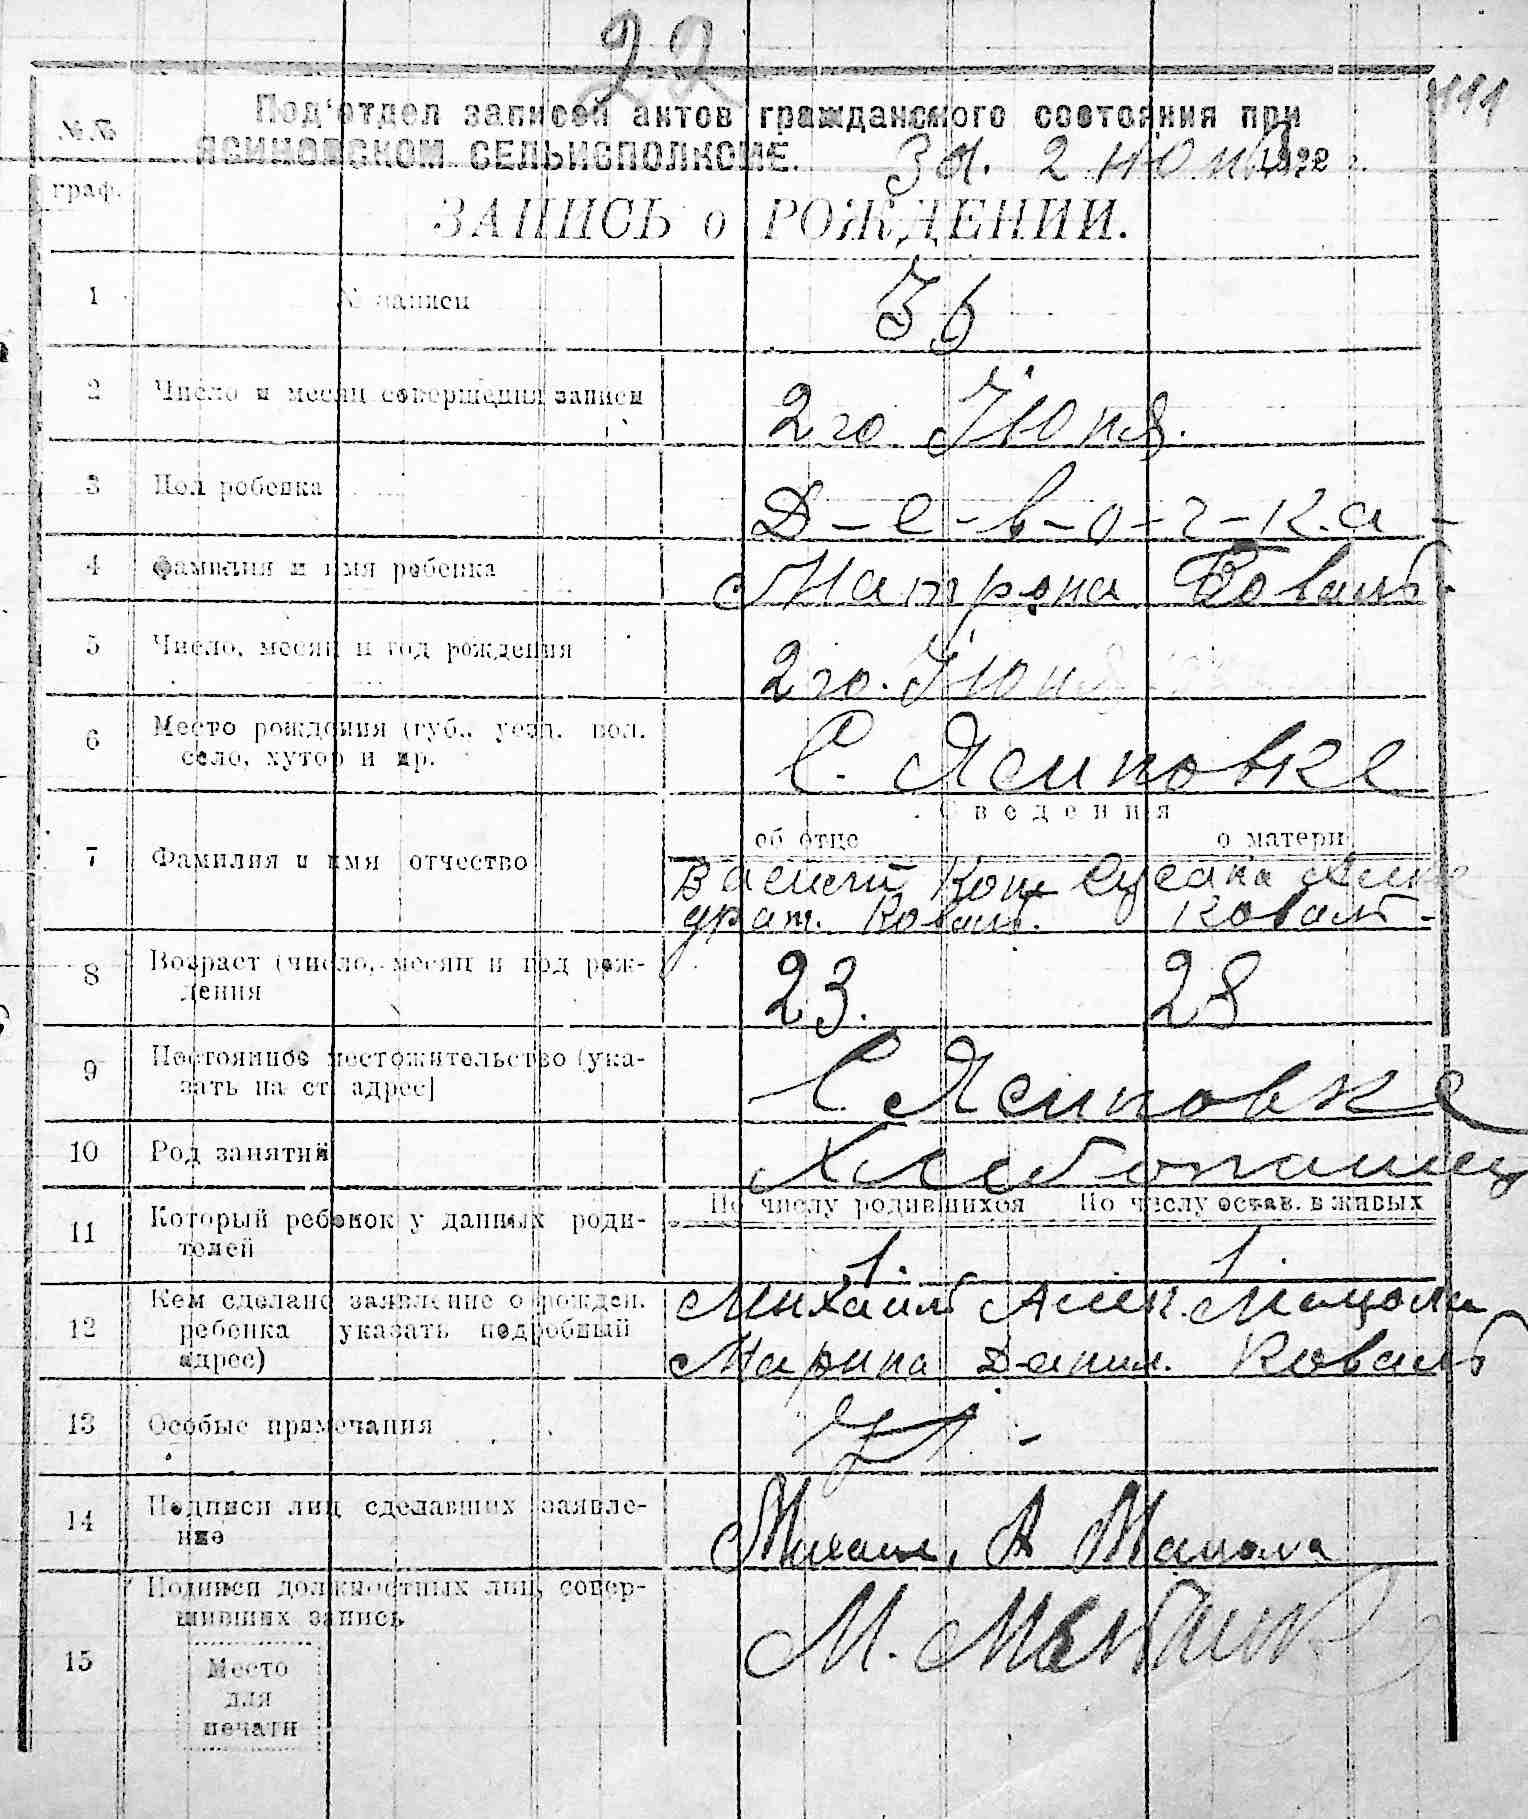 22
Под'отдел записей актов гражданского состояния при
№№ ЯСИНОВСКОМ СЕЛЬИСПОЛКОМЕ. За. 2 июня 1922 г.
граф.
ЗАПИСЬ о РОЖДЕНИИ.
1 № записи 36
2 Число и месяц совершения записи 2го Июня.
3 Пол ребенка Д-е-в-о-ч-к.а-
4 Фамилия и имя ребенка Матрона Коваль.
5 Число, месяц и год рождения 2го. Июня
6 Место рождения (губ., уезд. вол.
село, хутор и др. С. Ясиновке
Сведения
об отце о матери
7 Фамилия и имя отчество Василий Кон Сусана
драт. Коваль. Коваль.
8 Возраст (число, месяц и год рож-
дения 23. 28
9 Постоянное местожительство (ука-
зать на ст. адрес] С. Ясиновке
10 Род занятий Хлебопашец
По числу родившихся По числу остав. в живых
11 Который ребенок у данных роди-
телей 1. 1.
12 Кем сделано заявление о рожден.
ребенка указать подробный
адрес) Михаил Алек.
Марина Данил. Коваль
13 Особые примечания
14 Подписи лиц сделавших заявле-
ние Михаил. А
15 Подписи должностных лиц, совер-
шивших запись М.
Место
для
печати